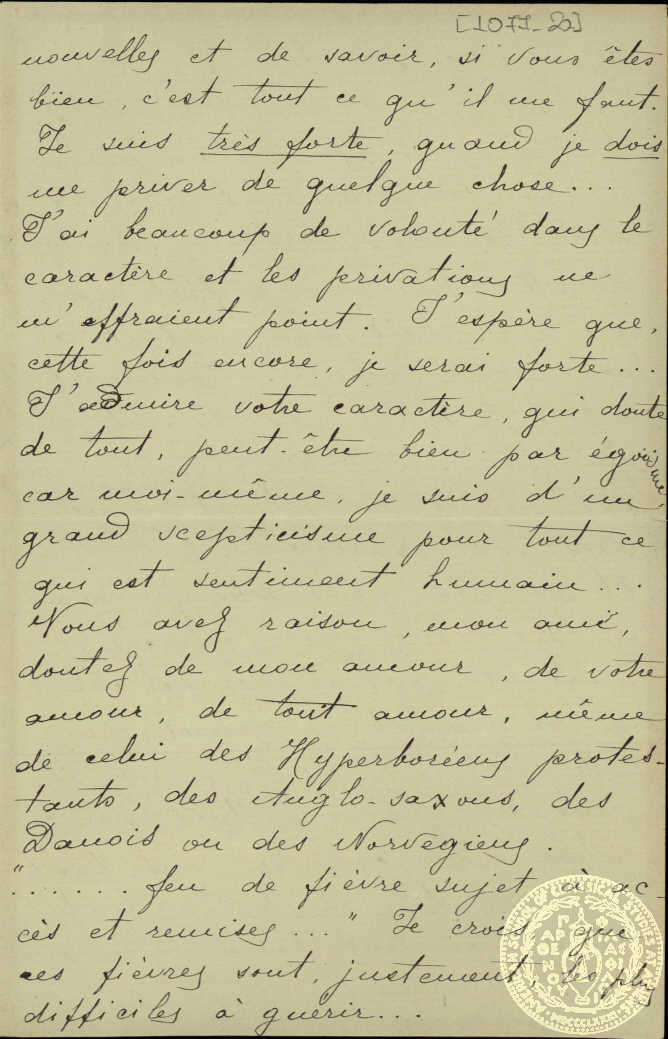 [1077-20]
nouvelles et de savoir, si vous êtes
bien, c'est tout ce qu'il me faut.
Je suis très forte, quand je dois
me priver de quelque chose...
J'ai beaucoup de volonté dans le
caractère et les privations ne
m'effraient point. J'espère que,
cette fois encore, je serai forte...
J'admire votre caractère, qui doute
de tout, peut-être bien par égoïsme,
car moi-même, je suis d'un
grand scepticisme pour tout ce
qui est sentiment humain...
Vous avez raison, mon ami,
doutez de mon amour, de votre
amour, de tout amour, même
de celui des Hyperboréens protes-
tants, des Anglo-saxons, des
Danois ou des Norvegiens.
"...... feu de fièvre sujet à ac-
cès et remises..." Je crois que
ces fièvres sont, justement, les plus
difficiles à guérir...